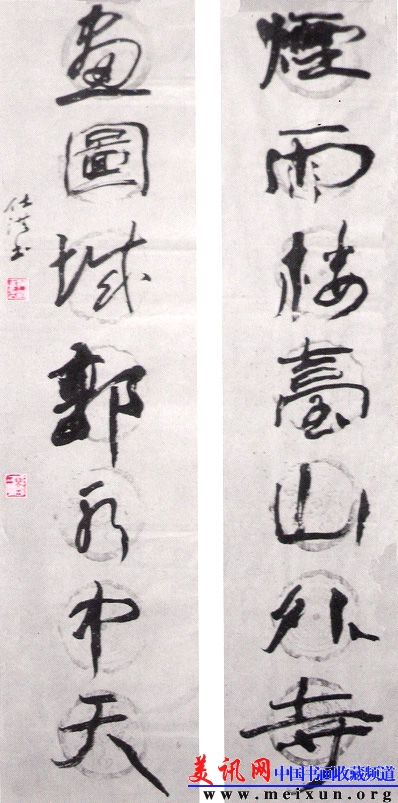 煙雨楼臺山外寺
畫圖城郭水中天
任潮书
美讯网 中国书画收藏频道
www.meixun.org